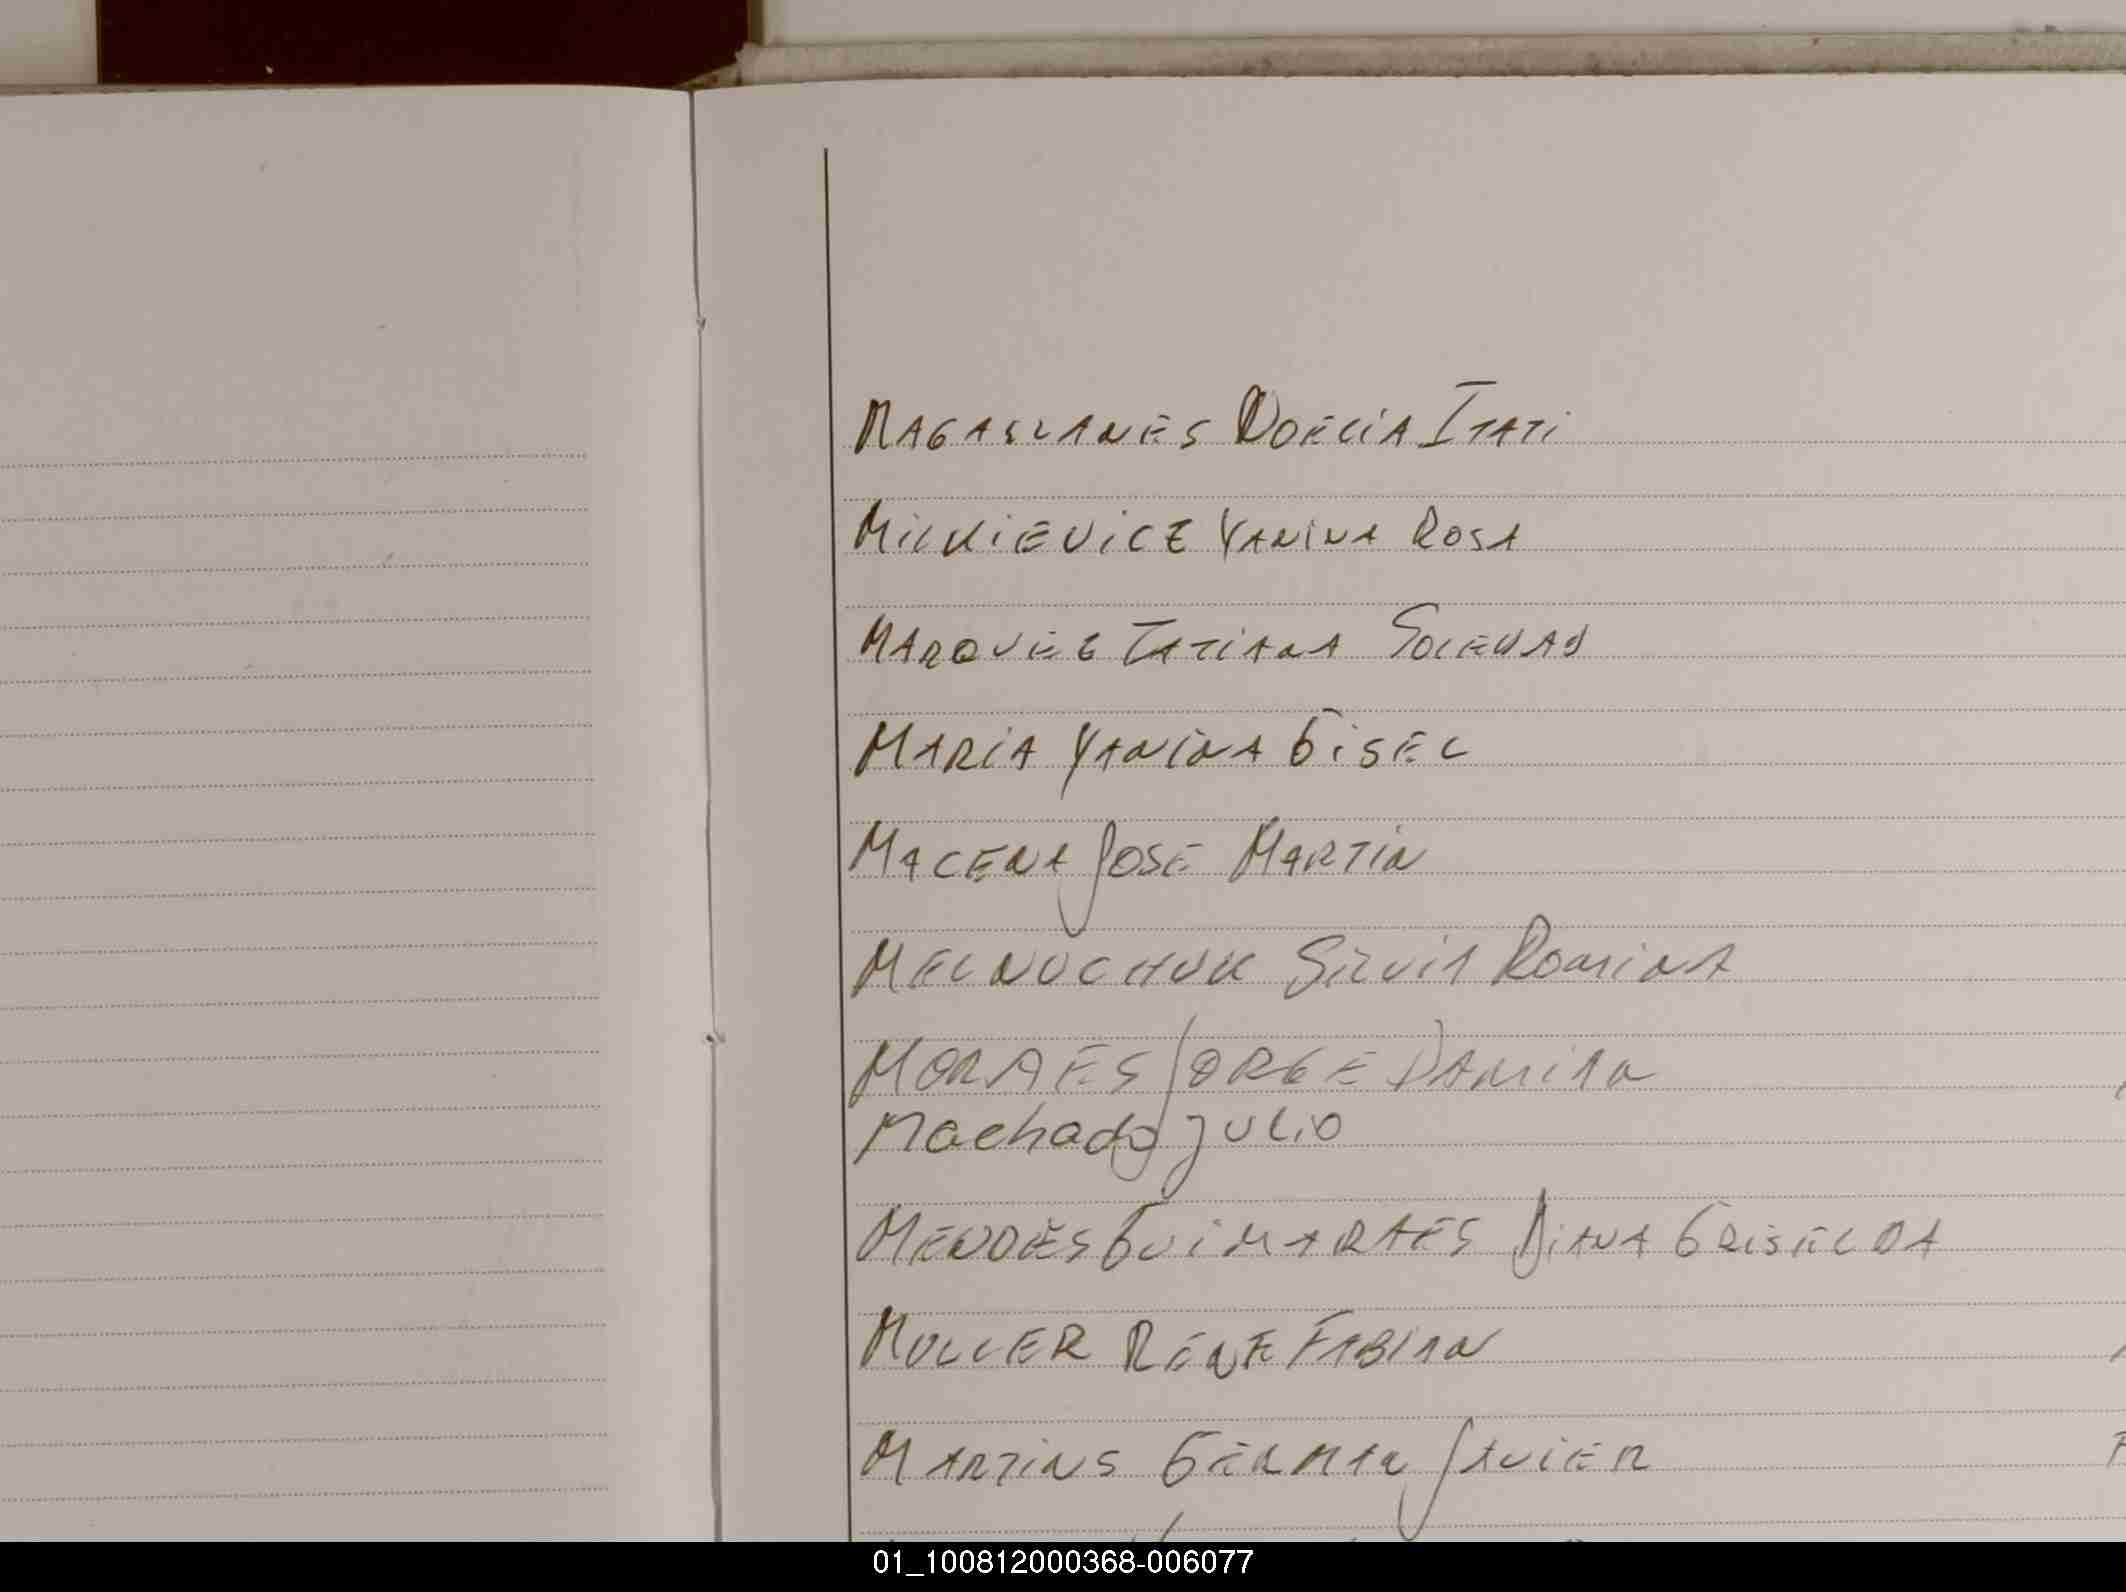 MAGALLANES NOELIA ITATI
MICKIEVICZ YANINA ROSA
MARQUEZ TATIANA SOLEDAD
MARIA YANINA GISEL
MACENA JOSE MARTIN
MELNUCHUK SILVIA ROMINA
MORAES JORGE DAMIAN
Machado JULIO
MENDES GUIMARAES DIANA GRISELDA
MULLER RENE FABIAN
MARTINS GERMAN JAVIER
01_100812000368-006077